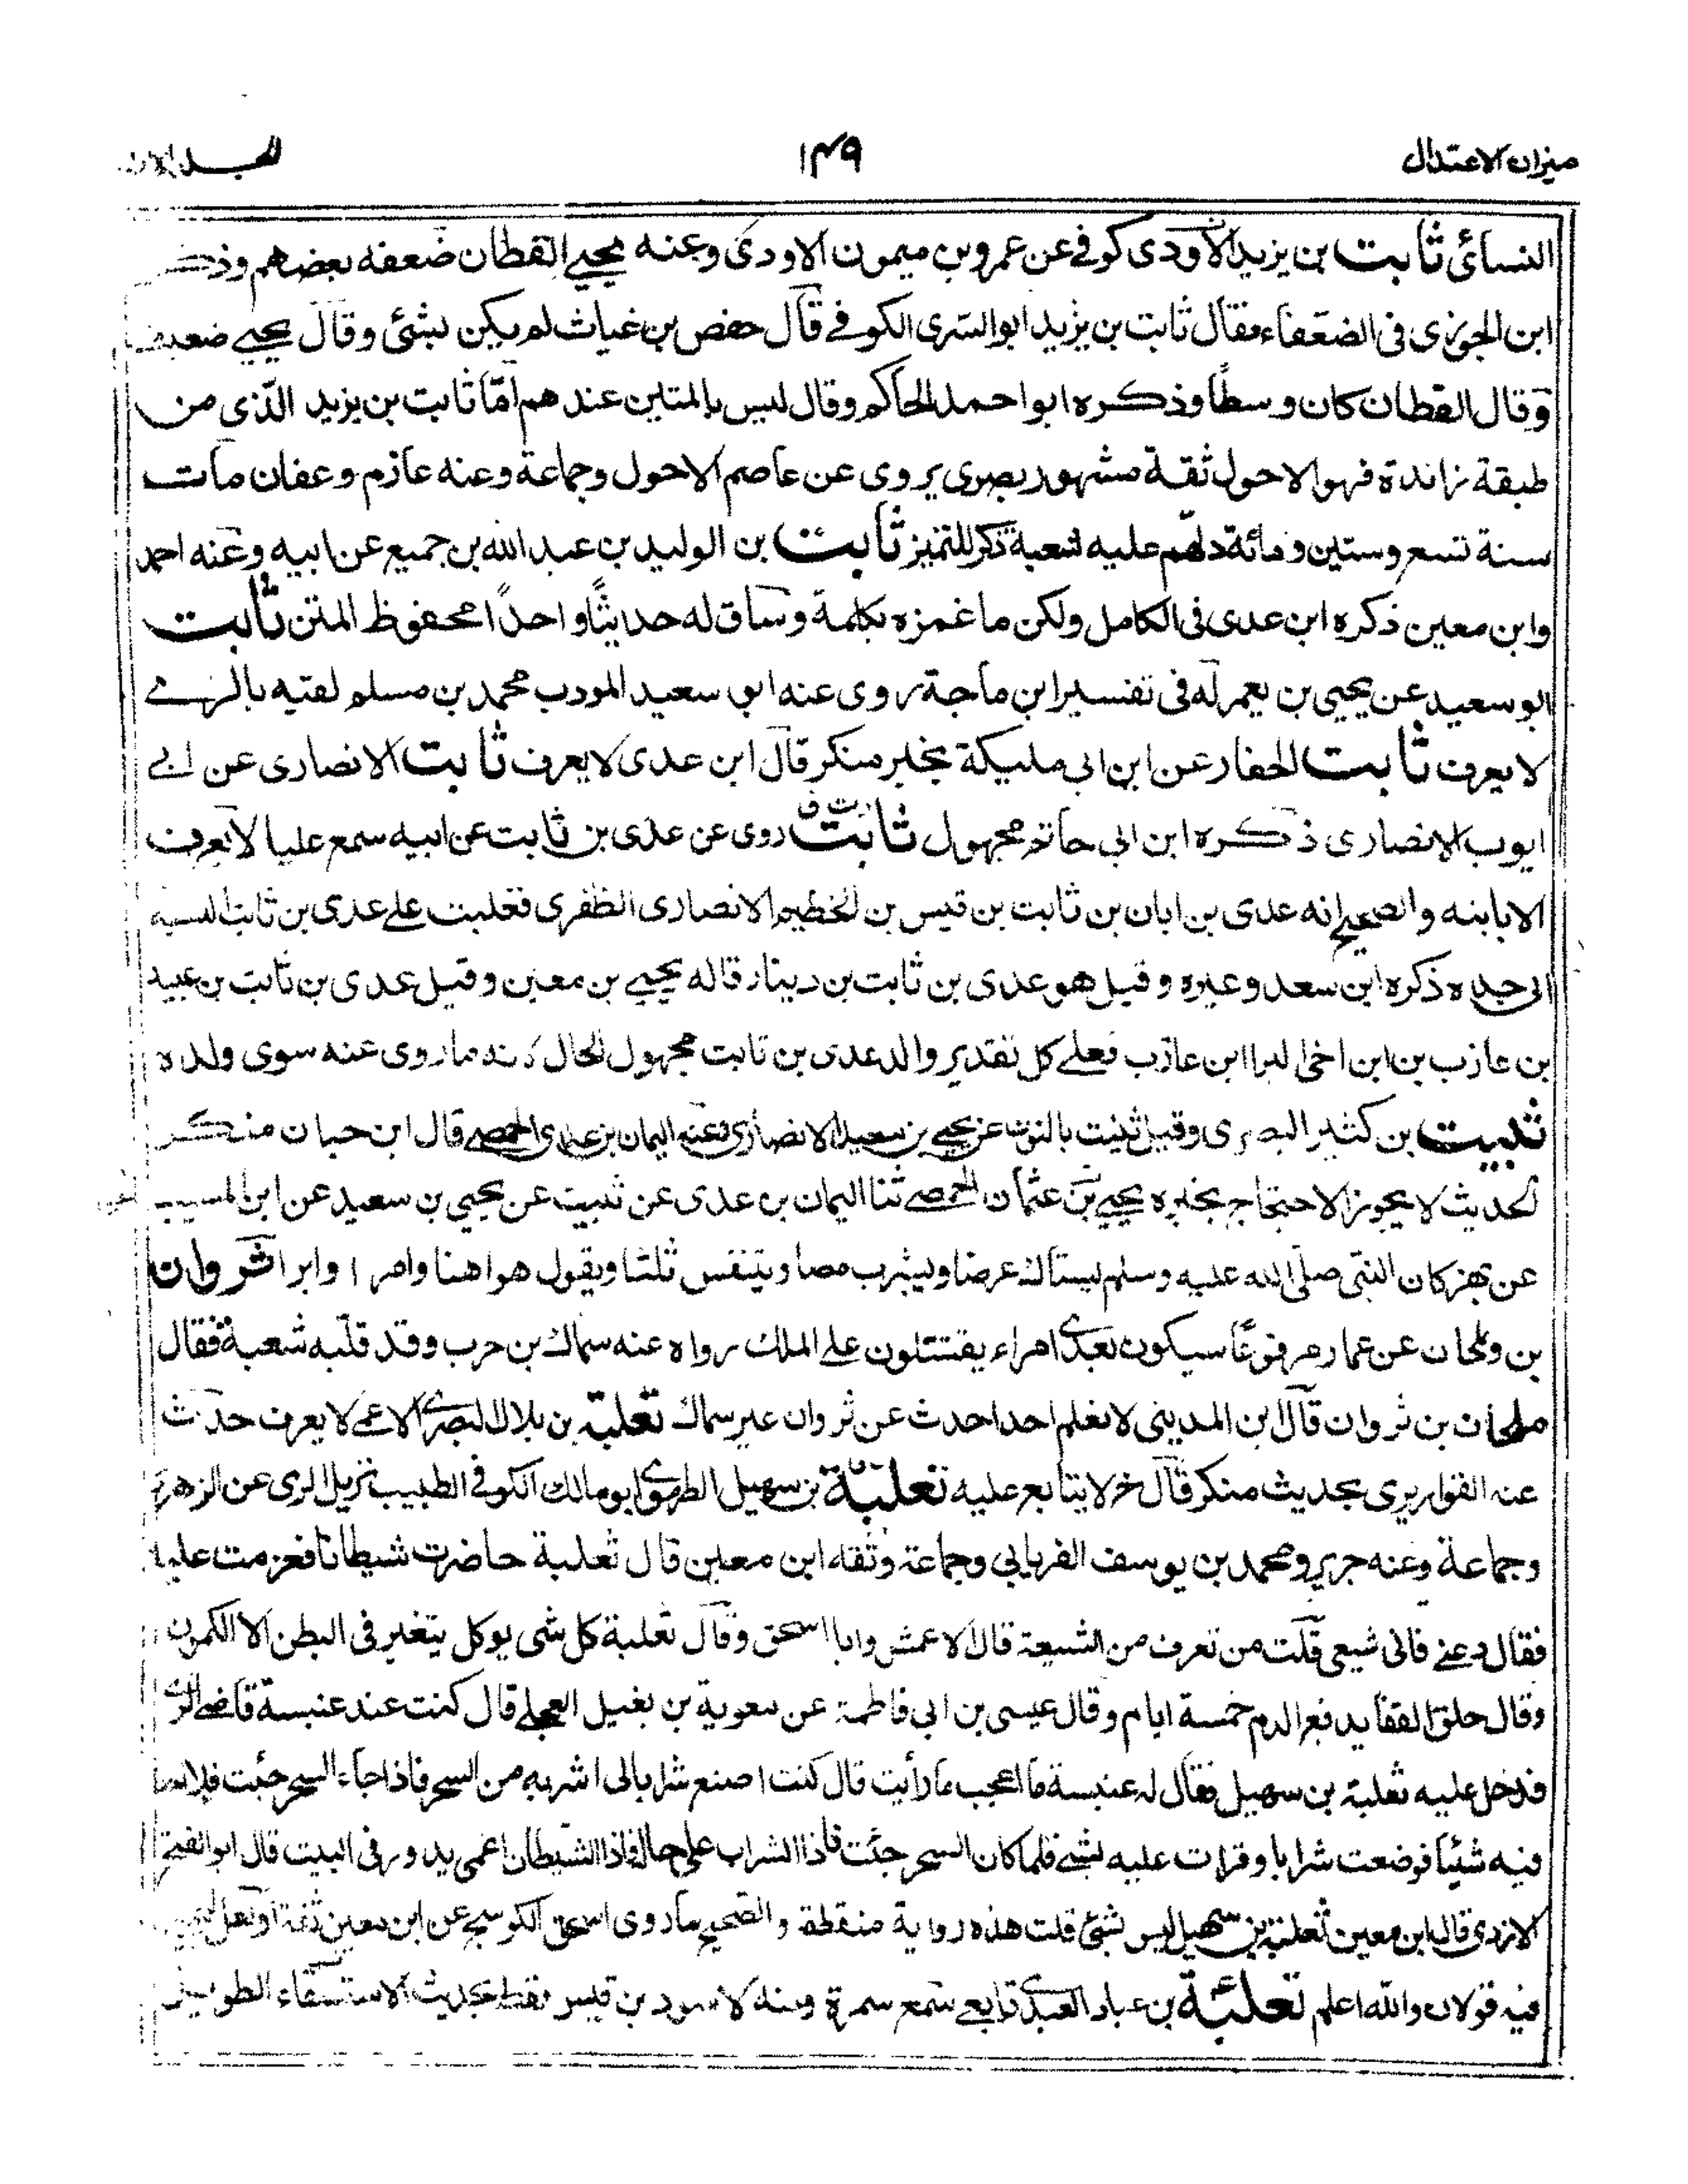 ميزان الاعتدال ١٤٩
النسائى ثابت بن يزيد الاودى كوفے عن عمرو بن ميمون الاودى وعنه يحيے القطان ضعفه بعضهم وذكر
ابن الجوزى فى الضعفاء فقال ثابت بن يزيد ابوالسرى الكوفے قال حفص بن غياث لم يكن بشئى وقال يحيے ضعيف
وقال القطان كان وسطًا وذكره ابو احمد الحاكم وقال ليس بالمتين عندهم امّا ثابت بن يزيد الذى من
طبقة زائدة فهو الاحول ثقة مشهور بصرى يروى عن عاصم الاحول وجماعة وعنه عازم وعفان مات
سنة تسع وستين ومائة دلهم عليه شعبة ذكر للتميز ثابت بن الوليد بن عبد الله بن جميع عن ابيه وعنه احمد
وابن معين ذكره ابن عدى فى الكامل ولكن ما غمزه بكلمة وساق له حديثًا واحدًا محفوظ المتن ثابت
ابو سعيد عن يحيى بن يعمر له فى تفسير ابن ماجة روى عنه ابو سعيد المودب محمد بن مسلم لقيه بالرے
لا يعرف ثابت الحفار عن ابن ابى مليكة بخبر منكر قال ابن عدى لا يعرف ثابت الانصارى عن ابے
ايوب الانصارى ذكره ابن ابى حاتم مجهول ثابت روى عن عدى بن ثابت عن ابيه سمع عليا لا يعرف
الا بابنه والصحيح انه عدى بن ابان بن ثابت بن قيس بن الخطيم الانصارى الظفرى فغلبت علے عدى بن ثابت النسبة
الى جده ذكره ابن سعد وغيره وقيل هو عدى بن ثابت بن دينار قاله يحيے بن معين وقيل عدى بن ثابت بن عبيد
بن عازب بن ابن اخى البرا ابن عازب فعلے كل تقدير والد عدى بن ثابت مجهول الحال لانه ما روى عنه سوى ولده
ثبيت بن كثير البصرى وقيل ثنيت بالنون عن يحيے بن سعيد الانصارى وعنه اليمان بن عدى الحمصے قال ابن حبان منكر
الحديث لا يجوز الاحتجاج بخبره يحيے بن عثمان الحمصے ثنا اليمان بن عدى عن ثبيت عن يحيى بن سعيد عن ابن المسيب
عن بهز كان النبى صلى الله عليه وسلم يستاك عرضا ويشرب مصا ويتنفس ثلثا ويقول هو اهنا وامرا وابرا ثروان
بن ملحان عن عمار مرفوعًا سيكون بعدى امراء يقتتلون علے الملك رواه عنه سماك بن حرب وقد قلبه شعبة فقال
ملحان بن ثروان قال ابن المدينى لا نعلم احدا حدث عن ثروان غير سماك ثعلبة بن بلال البصرى الاعمے لا يعرف حدث
عنه القواريرى بحديث منكر قال خ لا يتابع عليه ثعلبة بن سهيل الطهوى ابو مالك الكوفے الطبيب نزيل الرى عن الزهرى
وجماعة وعنه جرير ومحمد بن يوسف الفريابي وجماعة وثقه ابن معين قال ثعلبة حاضرت شيطانا فعزمت عليه
فقال دعنے فانى شيعى قلت من تعرف من الشيعة قال الاعمش وابا اسحق وقال ثعلبة كل شى يوكل يتغير فى البطن الا الكمون
وقال حلق القفا يدفع الدم خمسة ايام وقال عيسى بن ابي فاطمة عن معوية بن بغيل العجلے قال كنت عند عنبسة قاضے الرى
فدخل عليه ثعلبة بن سهيل فقال له عنبسة ما اعجب ما رأيت قال كنت اصنع شرابا لى اشربه من السحر فاذا جاء السحر جئت فلا
فيه شيئا فوضعت شرابا وقرات عليه بشے فلما كان السحر جئت فاذا الشراب على حاله فاذا الشيطان اعمى يدور فى البيت قال ابو الفتح
الازدى قال ابن معين ثعلبة بن سهيل ليس بشئ قلت هذه رواية منقطة والصحيح ما روى اسحق الكوسج عن ابن معين ثقة
فيه قولان والله اعلم ثعلبة بن عباد العبدى تابعے سمع سمرة وعنه الاسود بن قيس فقط بحديث الاستسقاء الطويل